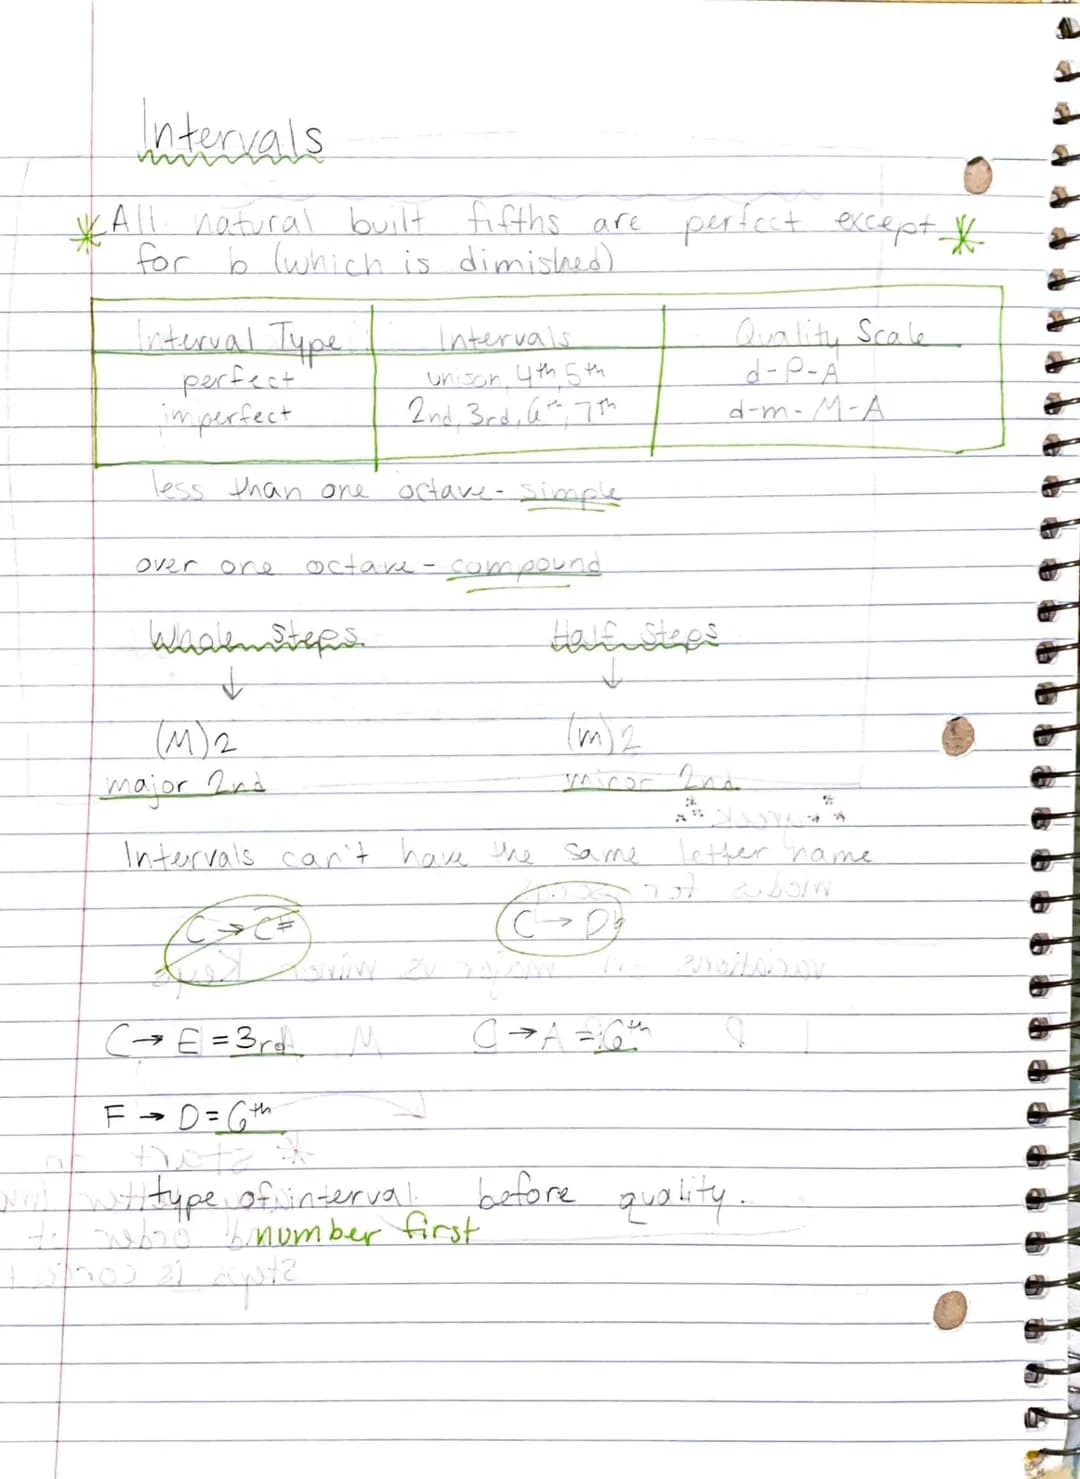 Intervals
* All natural built fifths are perfect except *
for b (which is dimished)
Interval Type Intervals Quality Scale
perfect unison, 4th, 5th d-P-A
imperfect 2nd, 3rd, 6th, 7th d-m-M-A
less than one octave - simple
over one octave - compound
Whole Steps Half Steps
↓ ↓
(M)2 (m)2
major 2nd minor 2nd
Intervals can't have the same letter name
C → C# C → D♭
C → E = 3rd C → A = 6th
F → D = 6th
type of interval before quality.
number first